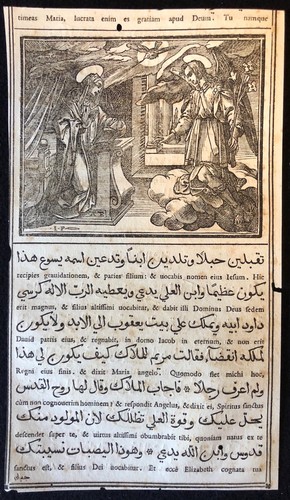 timeas Maria, lucrata enim es gratiam apud Deum. Tu namque
تقبلين حبلا وتلدين ابنا وتدعين اسمه يسوع هذا
recipies gravidationem, & paries filium: & uocabis nomen eius Iesum. Hic
يكون عظيما وابن العلي يدعي ويعطيه الرب الاله كرسي
erit magnus, & filius altissimi uocabitur, & dabit illi Dominus Deus sedem
داود ابيه ويملك علي بيت يعقوب الي الابد ولا يكون
Dauid patris eius, & regnabit, in domo Iacob in eternum, & non erit
لملكه انقضا فقالت مريم للملاك كيف يكون لي هذا
Regni eius finis, & dixit Maria angelo: Quomodo fiet michi hoc,
ولم اعرف رجلا فاجاب الملاك وقال لها روح القدس
cùm non cognouerim hominem? & respondit Angelus, & dixit ei, Spiritus sanctus
يحل عليك وقوة العلي تظللك لان المولود منك
descendet super te, & uirtus altissimi obumbrabit tibi, quoniam natus ex te
قدوس وابن الله يدعي وهوذا اليصبات نسيبتك
sanctus est, & filius Dei uocabitur. Et eccè Elizabeth cognata tua